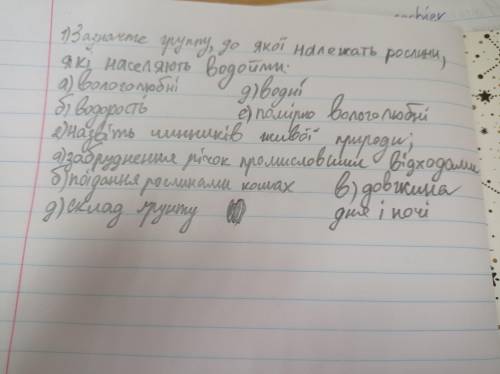 1) Зазначте группу, до якої належать рослини,
які населяють водойми:
а) вологолюбні д) водні
б) водорость е) помірно вологолюбні
2) назвіть чинників живої природи;
а) забруднення річок промисловими відходами
б) поїдання рослинами комах в) довжина
д) склад грунту дня і ночі